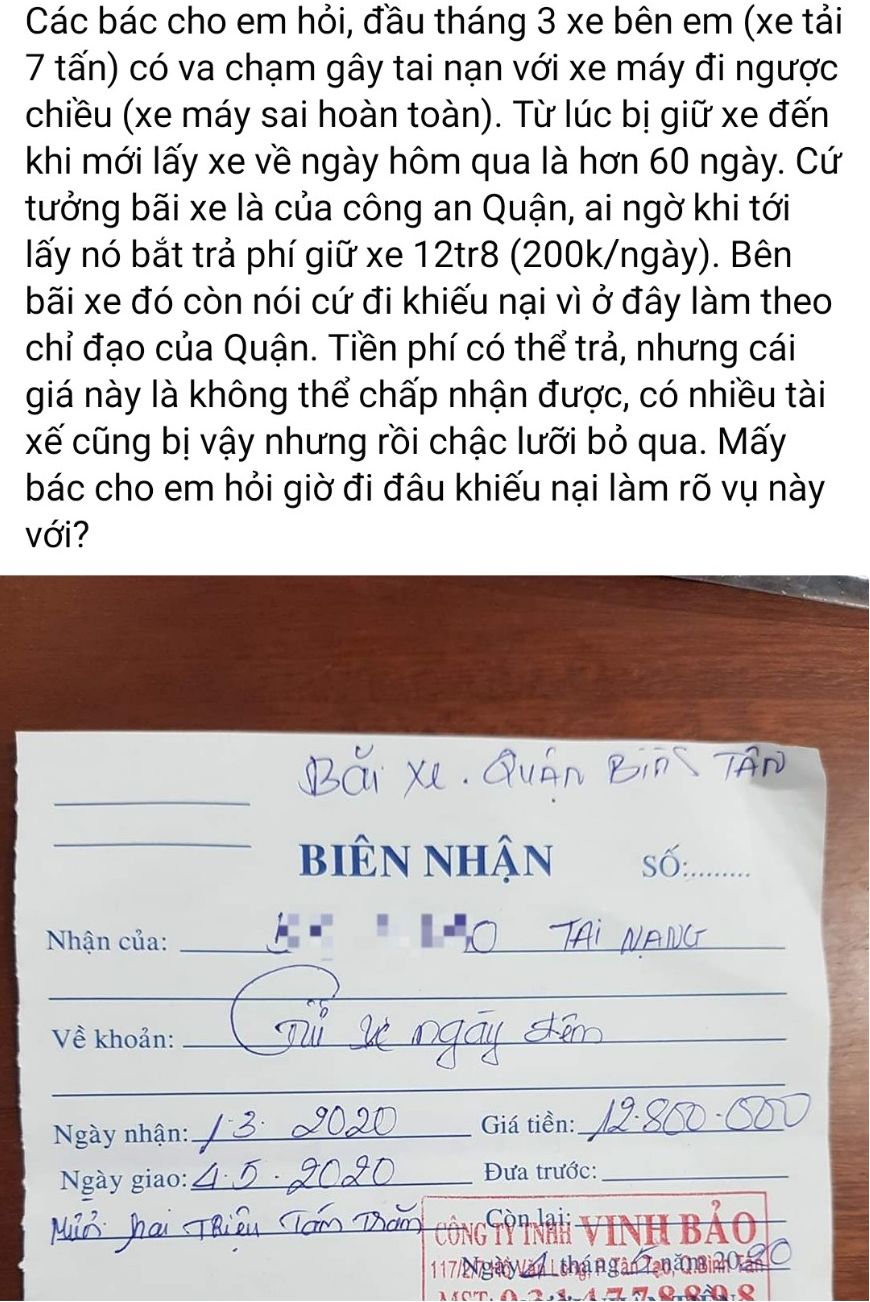 Các bác cho em hỏi, đầu tháng 3 xe bên em (xe tải
7 tấn) có va chạm gây tai nạn với xe máy đi ngược
chiều (xe máy sai hoàn toàn). Từ lúc bị giữ xe đến
khi mới lấy xe về ngày hôm qua là hơn 60 ngày. Cứ
tưởng bãi xe là của công an Quận, ai ngờ khi tới
lấy nó bắt trả phí giữ xe 12tr8 (200k/ngày). Bên
bãi xe đó còn nói cứ đi khiếu nại vì ở đây làm theo
chỉ đạo của Quận. Tiền phí có thể trả, nhưng cái
giá này là không thể chấp nhận được, có nhiều tài
xế cũng bị vậy nhưng rồi chậc lưỡi bỏ qua. Mấy
bác cho em hỏi giờ đi đâu khiếu nại làm rõ vụ này
với?
Bãi xe. Quận Bình TÂN
BIÊN NHẬN SỐ:.........
Nhận của: TAi NANG
Về khoản: xe ngày đêm
Ngày nhận: 1.3.2020 Giá tiền: 12.800.000
Ngày giao: 4.5.2020 Đưa trước:
Mười hai TRiệu Tám Trăm Còn lại:
CÔNG TY TNHH VINH BẢO
Ngày 4 tháng 5 năm 2020